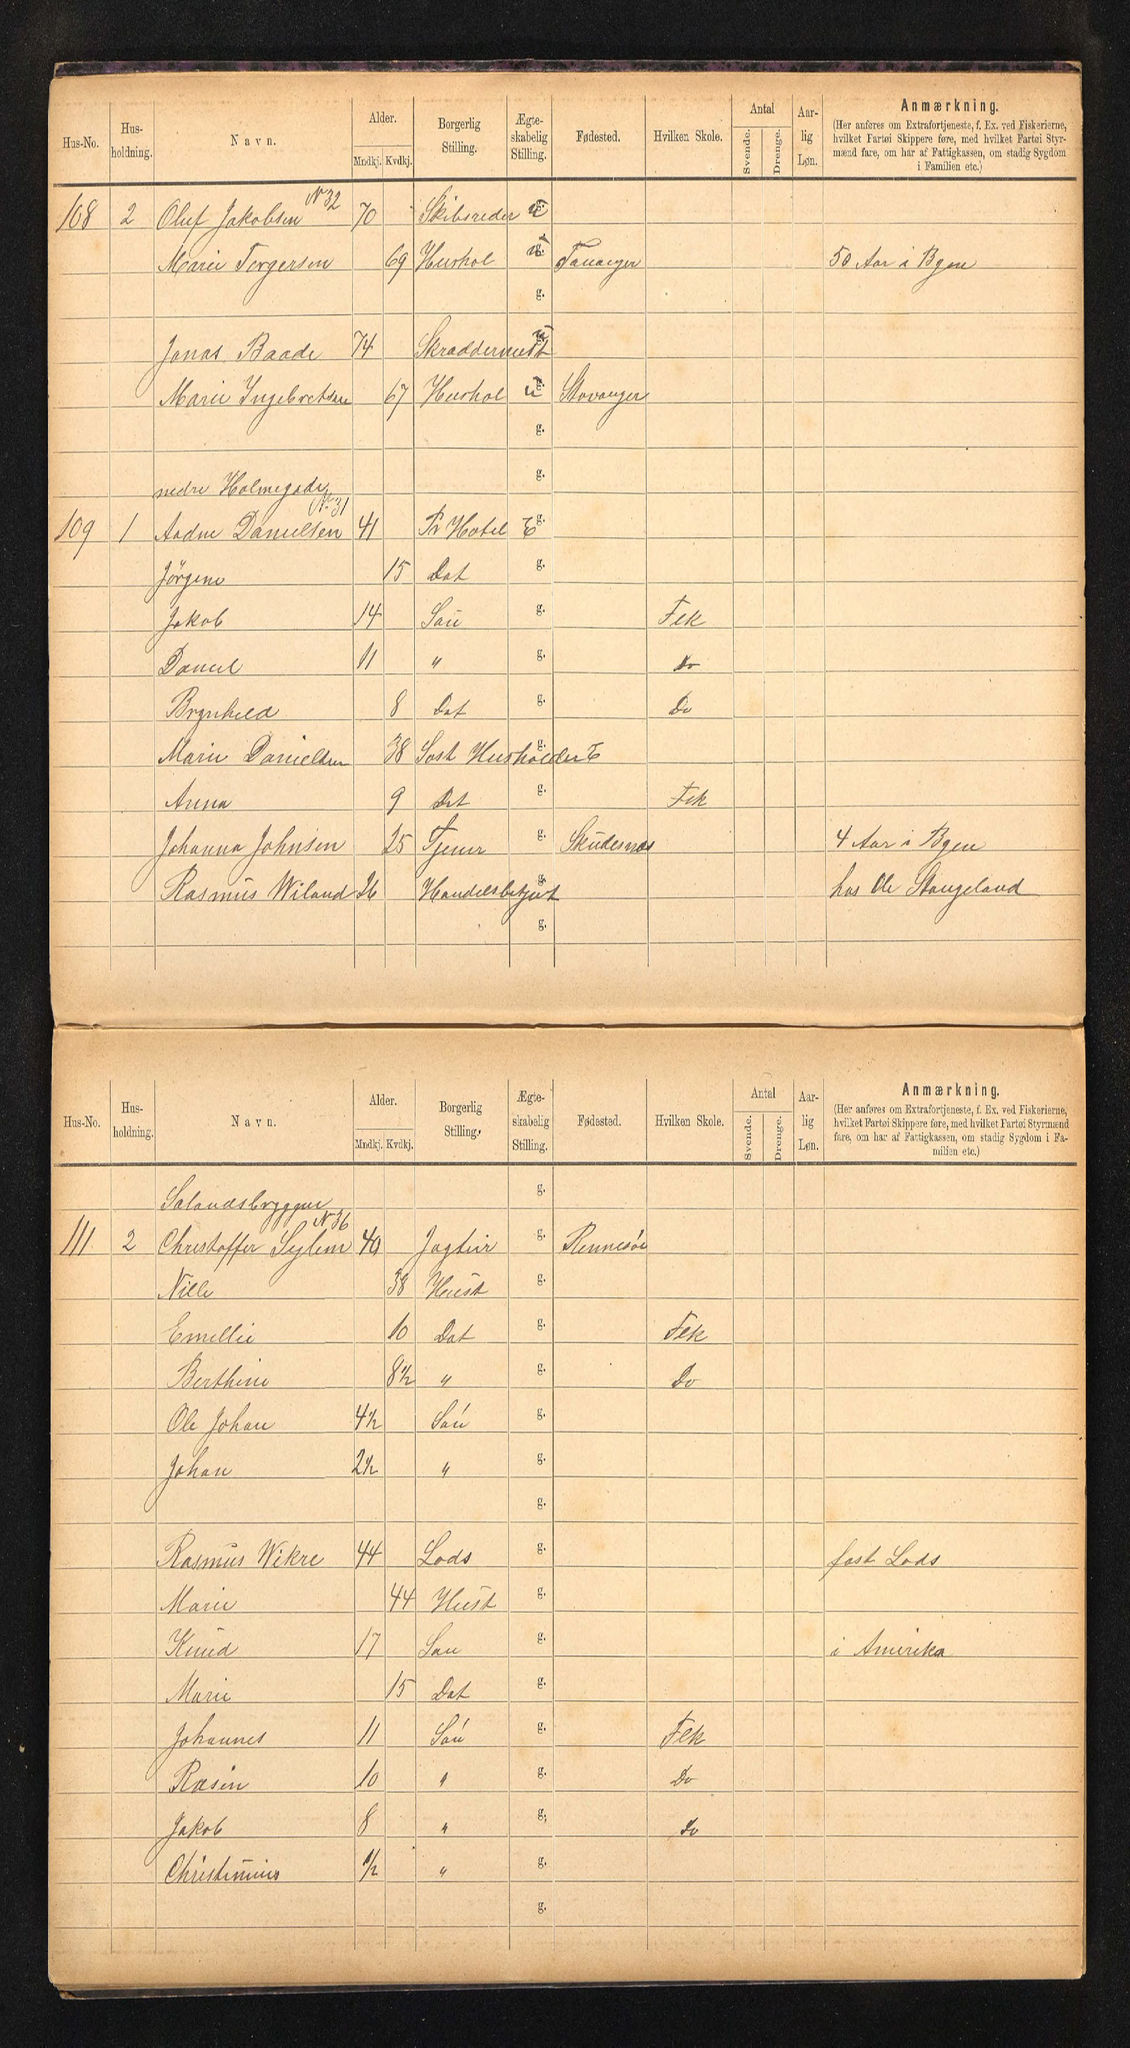 Hus-No. Hus-holdning. Navn. Alder. Mndkj. Kvdkj. Borgerlig Stilling. Ægte-skabelig Stilling. Fødested. Hvilken Skole. Antal Svende. Drenge. Aar-lig Løn. Anmærkning.
(Her anføres om Extrafortjeneste, f. Ex. ved Fiskerierne, hvilket Partøi Skippere føre, med hvilket Partøi Styr-mænd fare, om har af Fattigkassen, om stadig Sygdom i Familien etc.)
108 2 Oluf Jakobsen N 32 70 Skibsreder
Marie Torgersen 69 Hushol Tananger 50 Aar i Byen
g.
Jonas Baade 74 Skraddermest
Marie Ingebretsen 67 Hushol u g. Stavanger
g.
nedre Holmegade g.
109 1 Aadne Danielsen N. 31 41 Pr Hotel E g.
Jørgine 15 Dat g.
Jakob 14 Søn g. Flk
Daniel 11 " g. Do
Brynhild 8 Dat g. Do
Marie Danielsen 38 Søst Husholder E g.
Anna 9 Dat g. Flk
Johanna Johnsen 25 Tjener g. Skudesnæs 4 Aar i Byen
Rasmus Wiland 26 Handelsbetjent g. hos Ole Stangeland
g.
Hus-No. Hus-holdning. Navn. Alder. Mndkj. Kvdkj. Borgerlig Stilling. Ægte-skabelig Stilling. Fødested. Hvilken Skole. Antal Svende. Drenge. Aar-lig Løn. Anmærkning.
(Her anføres om Extrafortjeneste, f. Ex. ved Fiskerierne, hvilket Partøi Skippere føre, med hvilket Partøi Styrmænd fare, om har af Fattigkassen, om stadig Sygdom i Fa-milien etc.)
Sølandsbryggene g.
111 2 Christoffer N 36 40 Jagteir g. Rennesøe
Nille 38 Hust g.
Emellie 10 Dat g. Flk
Berthine 8½ " g. Do
Ole Johan 4½ Søn g.
Johan 2½ " g.
g.
Rasmus Wikre 44 Lods g. fast Lods
Marie 44 Hust g.
Knud 17 Søn g. i Amerika
Marie 15 Dat g.
Johannes 11 Søn g. Flk
Rasin 10 " g. Do
Jakob 8 " g. Do
Christinius ½ " g.
g.